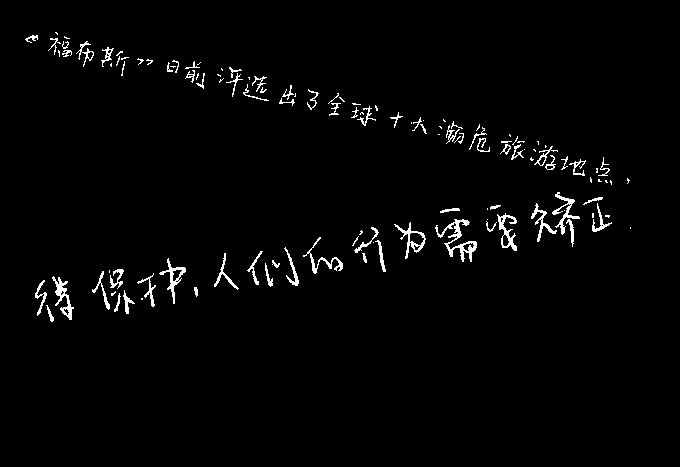 “福布斯”日前评选出了全球十大濒危旅游地点，
待保种，人们的行为需要矫正.